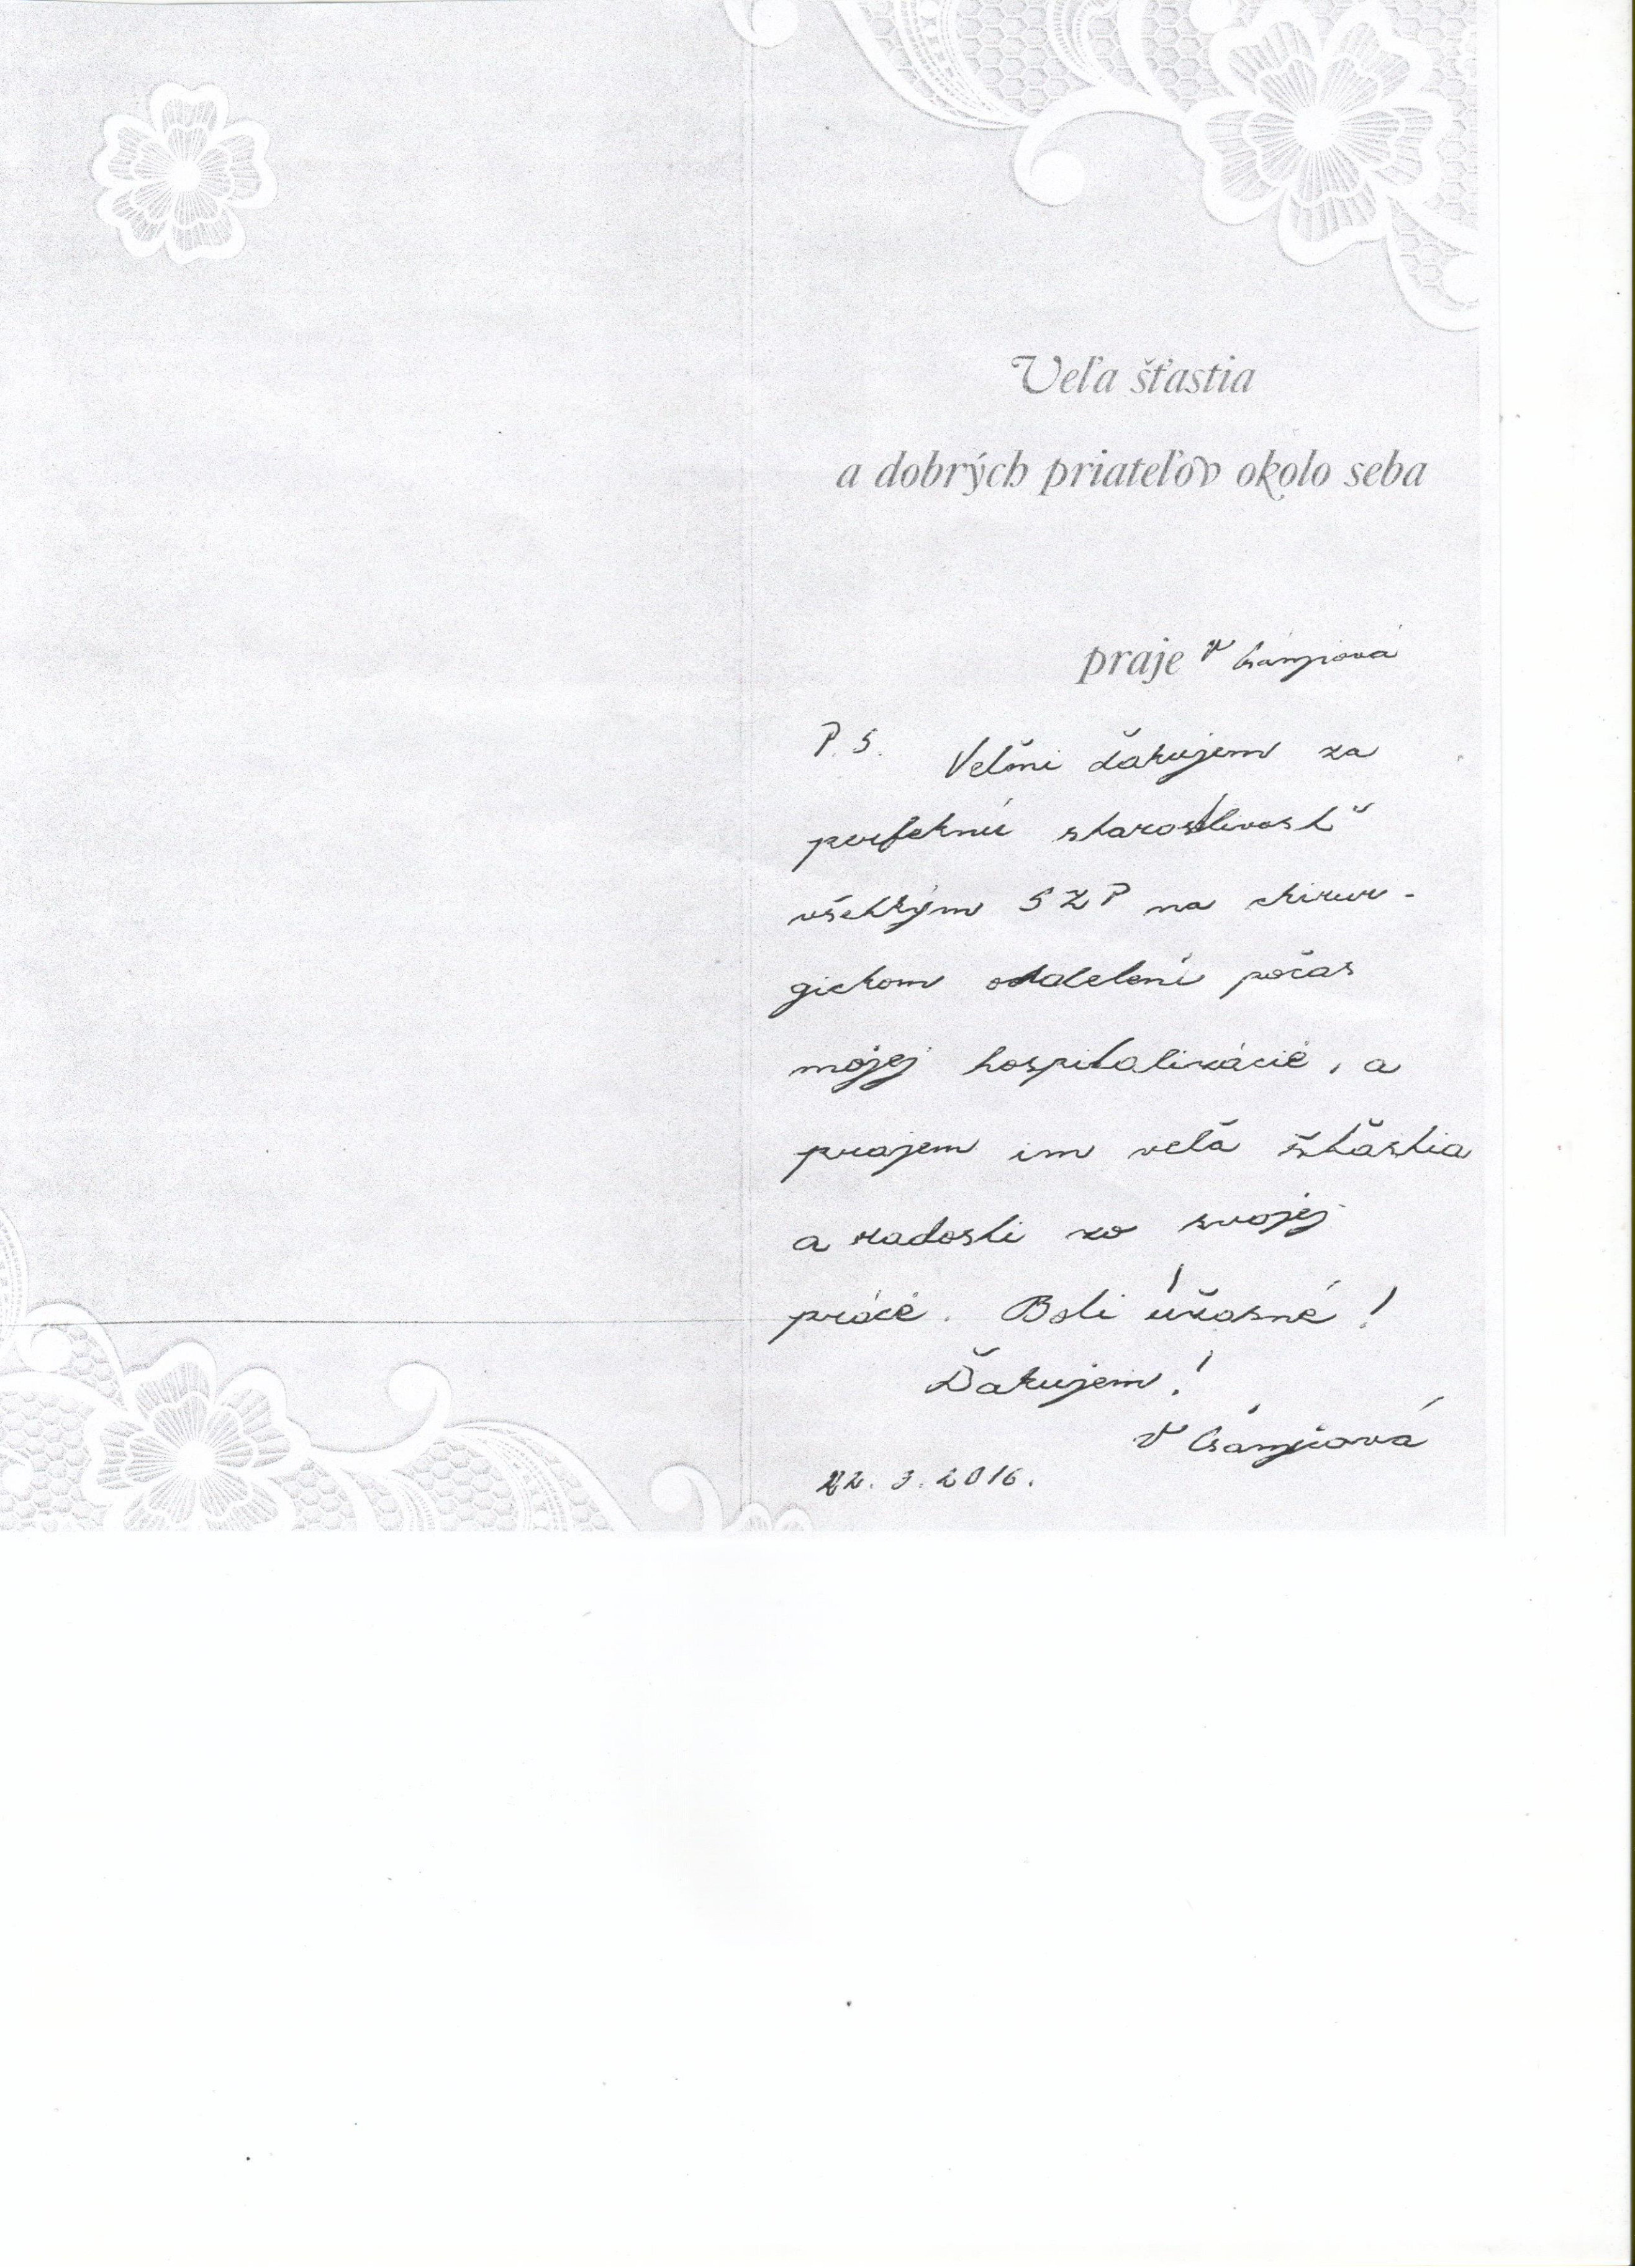 Veľa šťastia
a dobrých priateľov okolo seba
praje V Csányiová
P. S. Veľmi ďakujem za
perfektnú starostlivosť
všetkým SZP na chirur-
gickom oddelení počas
mojej hospitalizácie, a
prajem im veľa šťastia
a radosti zo svojej
práce. Boli úžasné!
Ďakujem!
V Csányiová
22. 3. 2016.